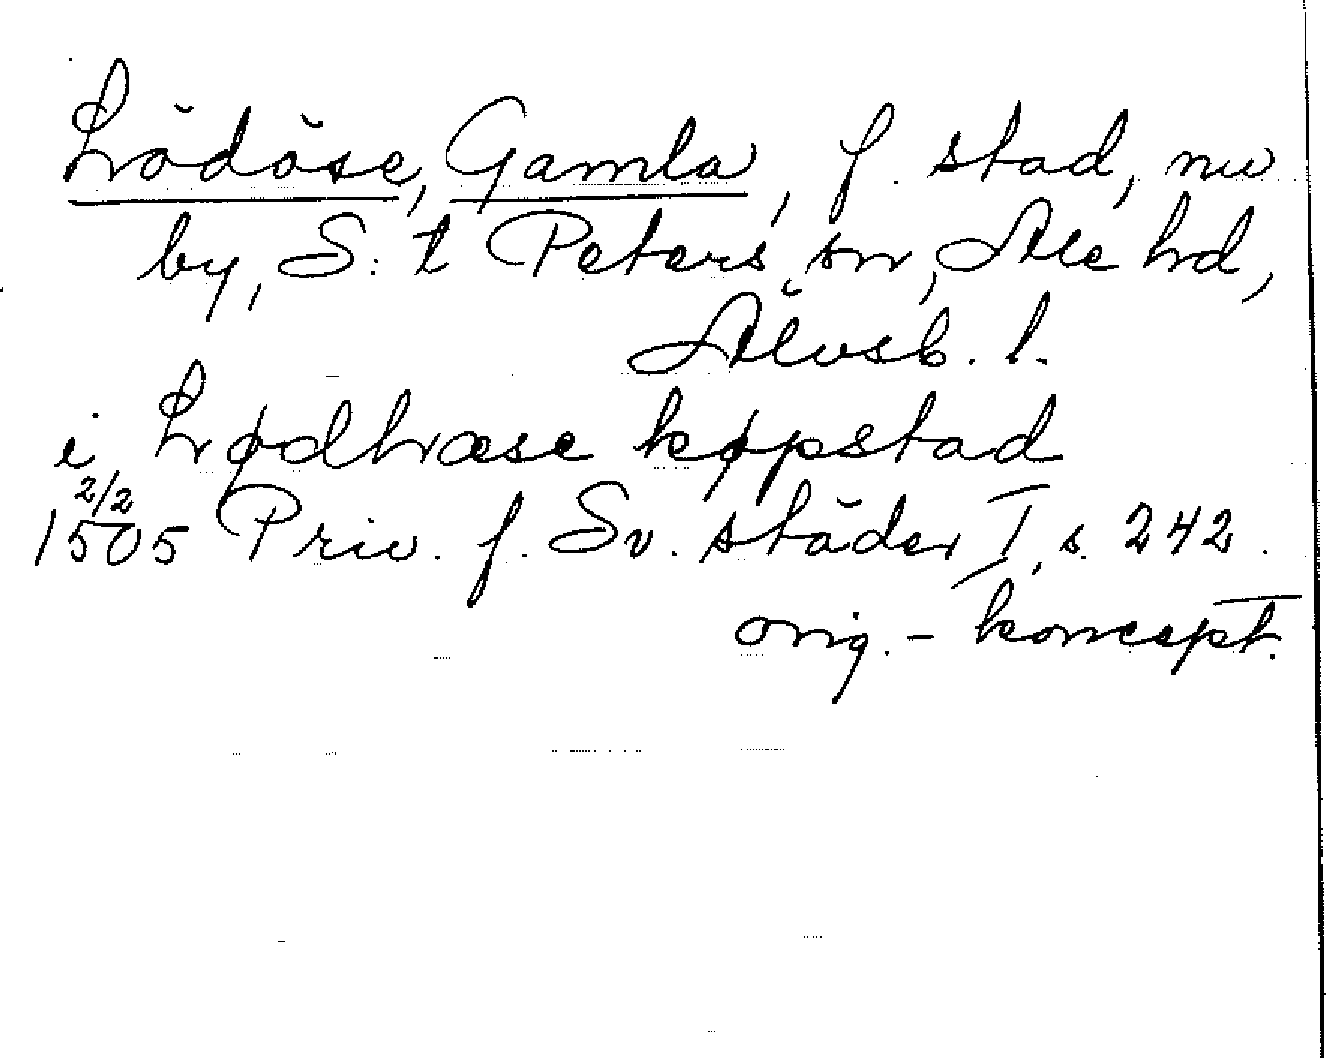 Lödöse, Gamla, f. stad, nu
by, S:t Peters sn, Ale hd,
Älvsb. l.
i Lødhæse køpstad
2/2
1505 Priv. f. Sv. städer I, s. 242.
orig.-koncept.